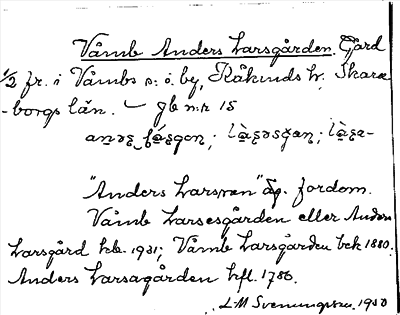 Våmb Anders Larsgården. Gård
1/2 fr. i Våmbs s. o. by, Kåkinds hr, Skara-
-borgs län. – jb nr 15
"Anders Larsman" äg. fordom.
Våmb Larsesgården eller Anders
Larsgård hb. 1931; Våmb Larsgården bek 1880.
Anders Larsagården hfl. 1786.
L-M Svenungsson. 1950